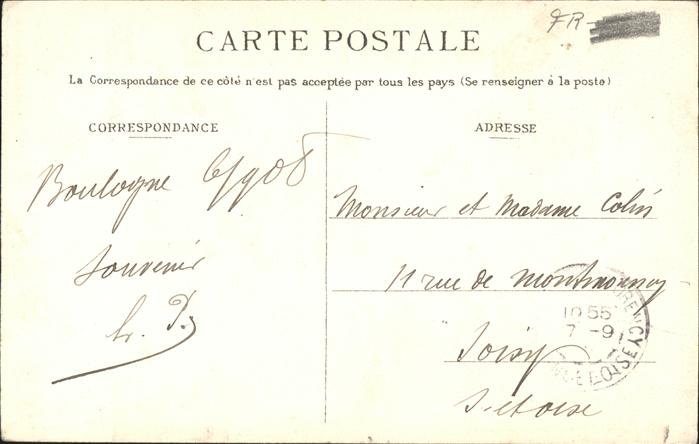 FR-
CARTE POSTALE
La Correspondance de ce côté n'est pas acceptée par tous les pays (Se renseigner à la poste)
CORRESPONDANCE
Boulogne 6/9 08
Souvenir
ADRESSE
Monsieur et Madame Colin
11 rue de Montmorency
Soisy
S-et-oise
10 55
7 -9
RENCY
SEINE-ET-OISE